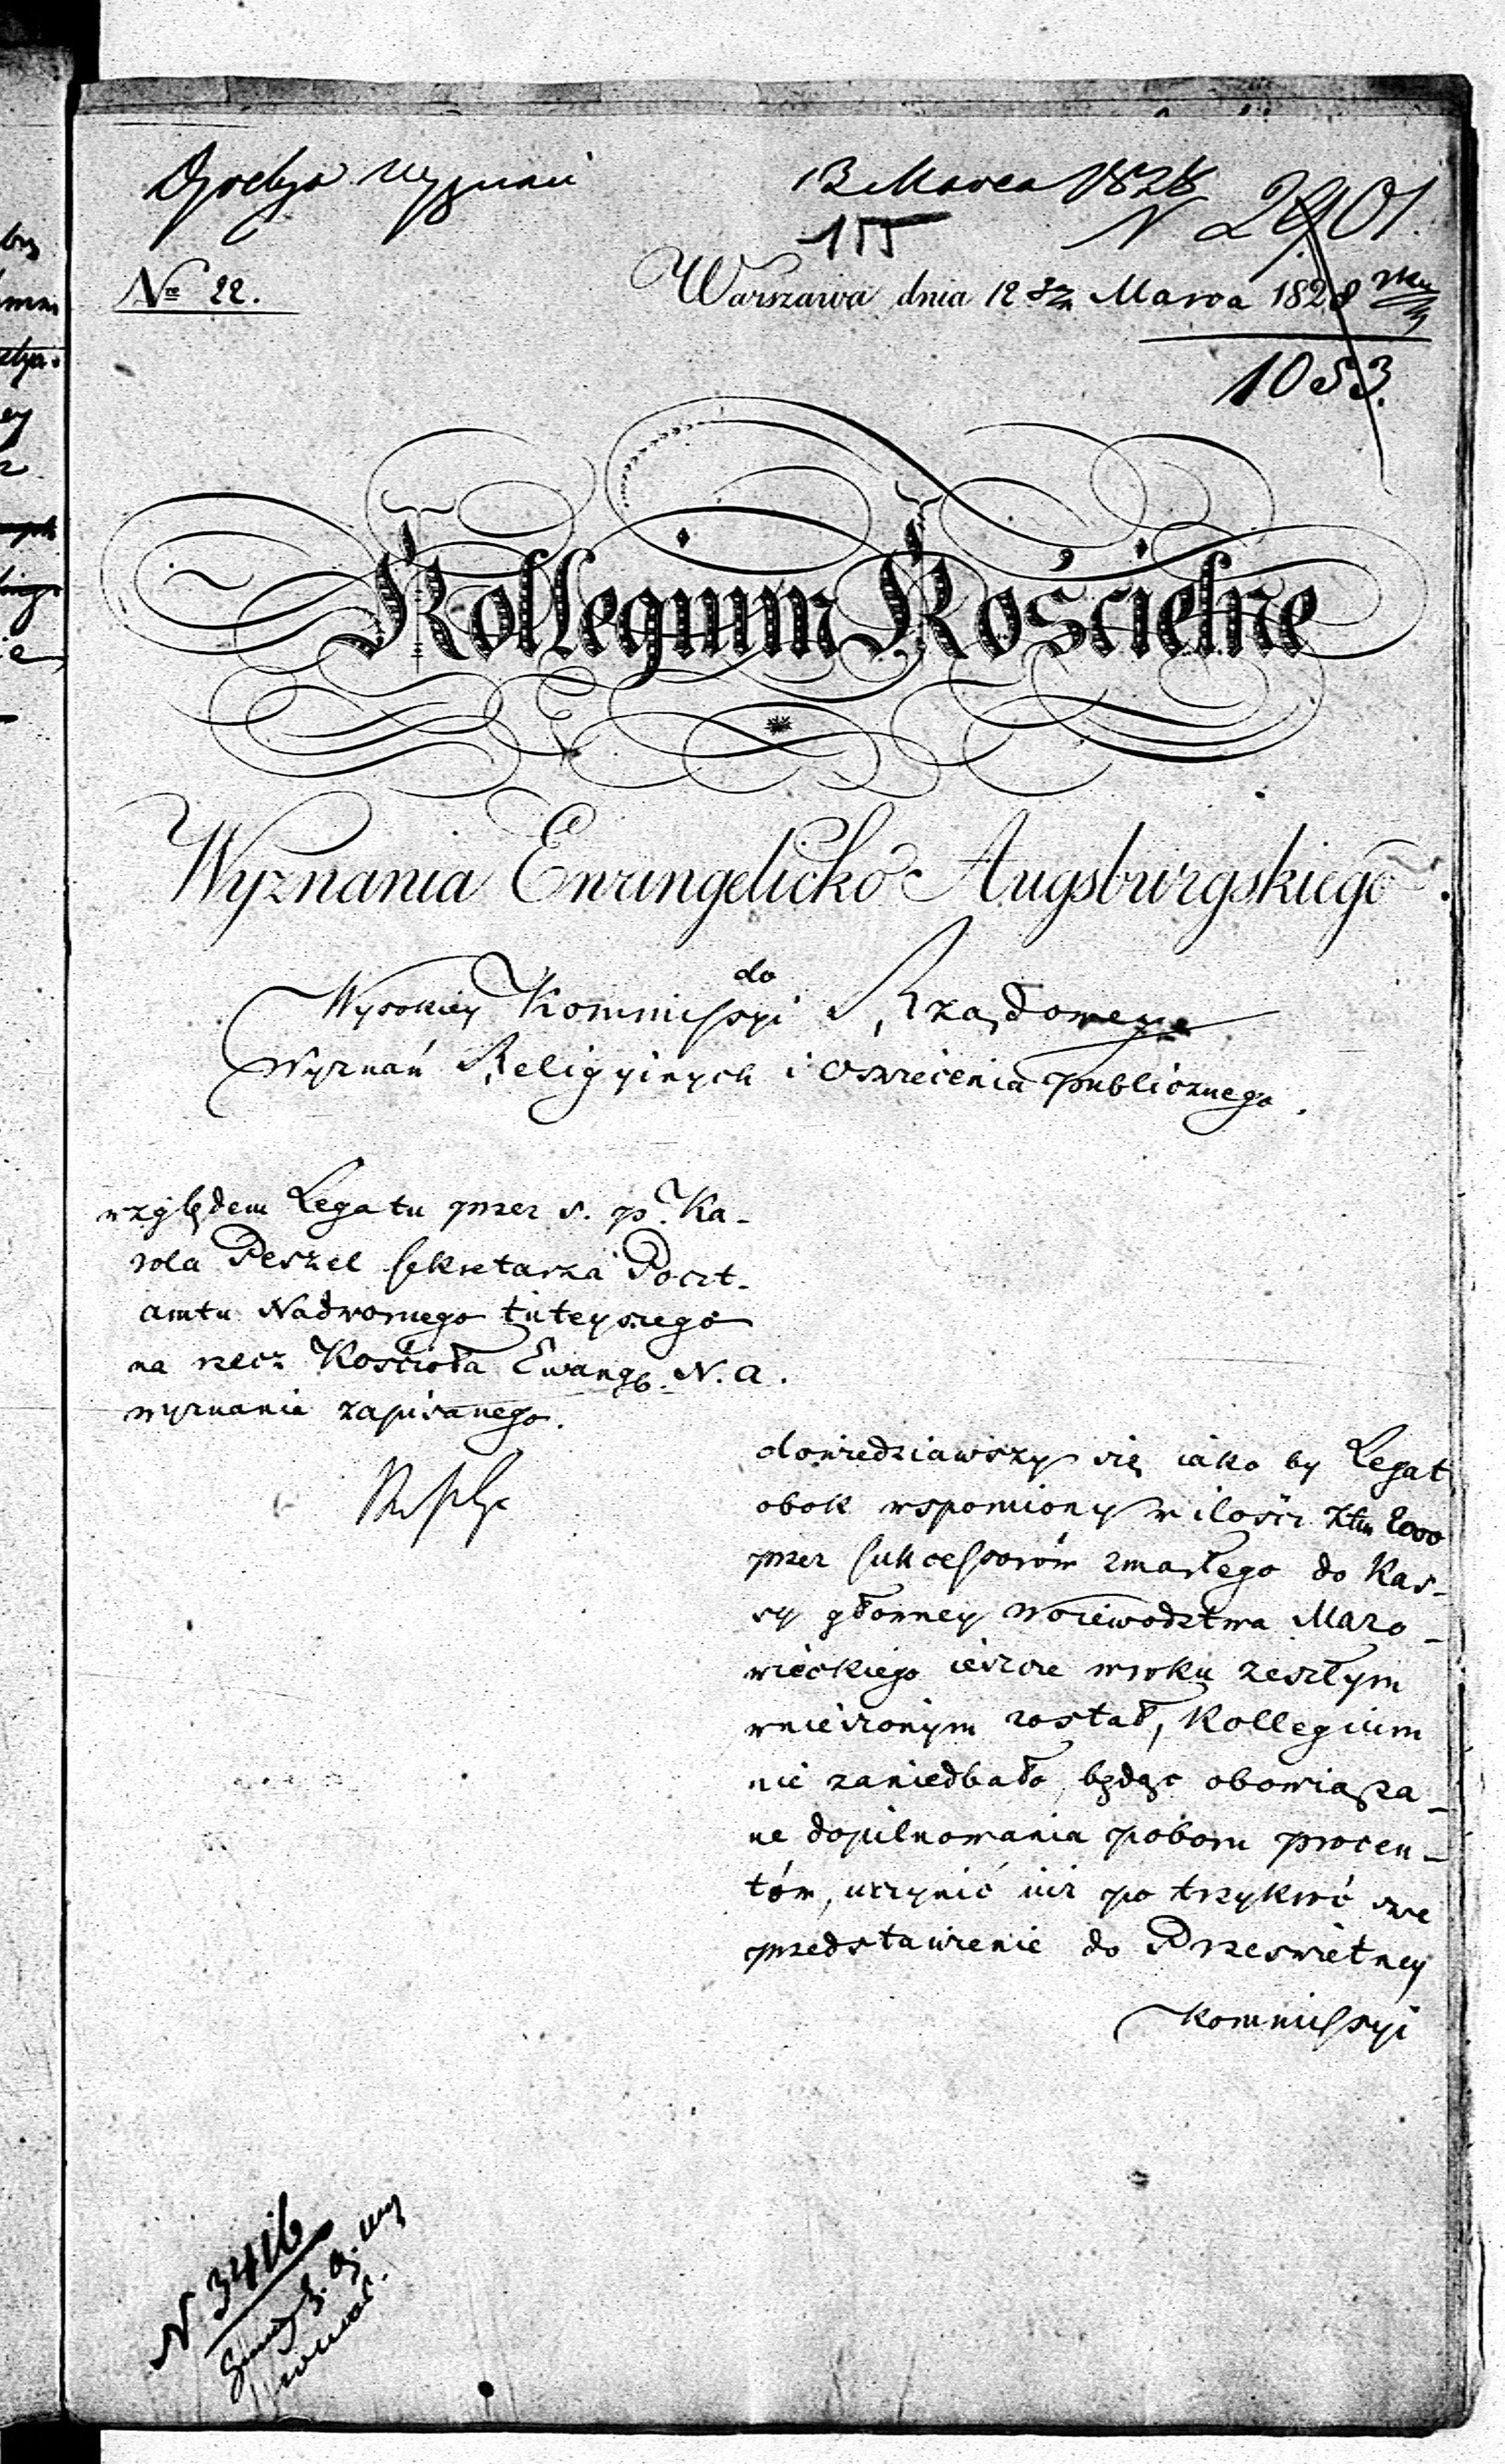 13 Marca 1828
N 2901.
155
Nro 22.
Warszawa dnia 12 go Marca 1828
1053.
Kollegium Kościelne
Wyznania Ewangelicko Augsburgskiego.
do
Wysokiey Kommissyi Rządowey
Wyznań Religyinych i Oświecenia publicznego.
względem Legatu przez ś. p. Ka-
rola Peszel sekretarza Poczt-
amtu Nadwornego tuteyszego
na rzecz Kościoła Ewangk. N. A.
wyznania zapisanego.
dowiedziawszy się iako by Legat
obok wspomiony w ilości Złtn 2000
przez sukcessorów zmarłego do Kas-
sy główney Woiewodztwa Mazo-
wieckiego ieszcze w roku zeszłym
wniesionym został, Kollegium
nie zaniedbało, będąc obowiąza-
ne dopilnowania poboru procen-
tów, uczynić iuż po trzykroć swe
przedstawienie do Prześwietney
Kommissyi
N 3416